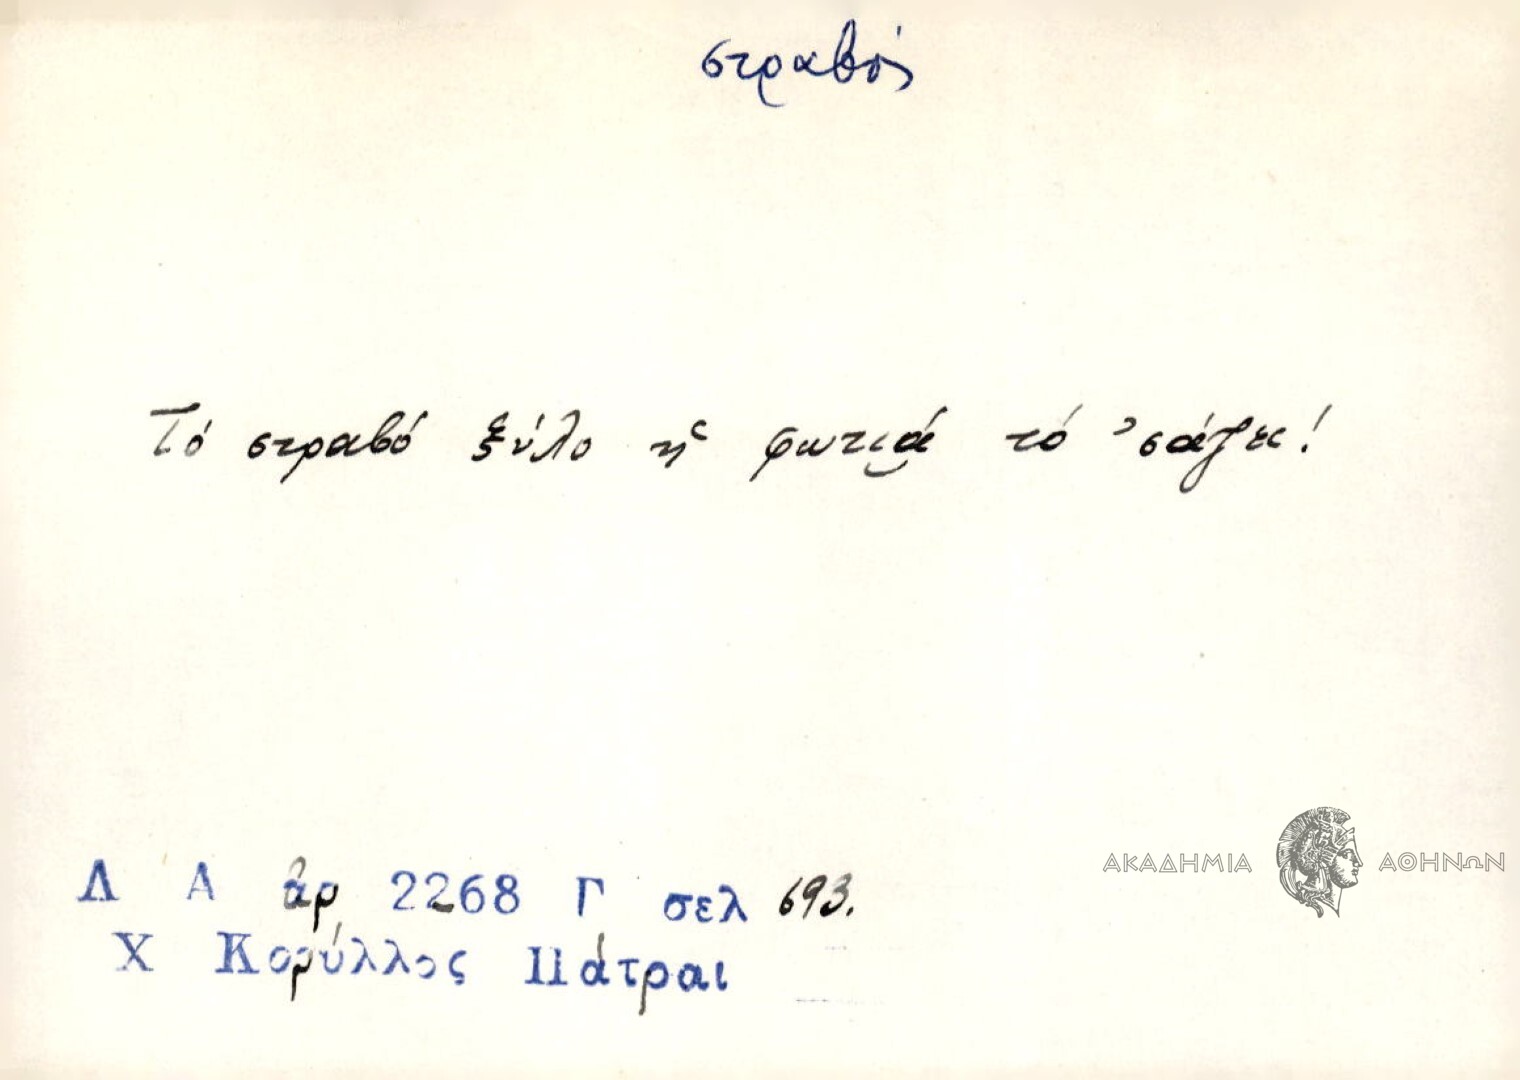 στραβός
Τό στραβό ξύλο ἡ φωτιά τό 'σάζει!
ΑΚΑΔΗΜΙΑ ΑΘΗΝΩΝ
Λ Α ἀρ 2268 Γ σελ 693.
Χ Κορύλλος Πάτραι